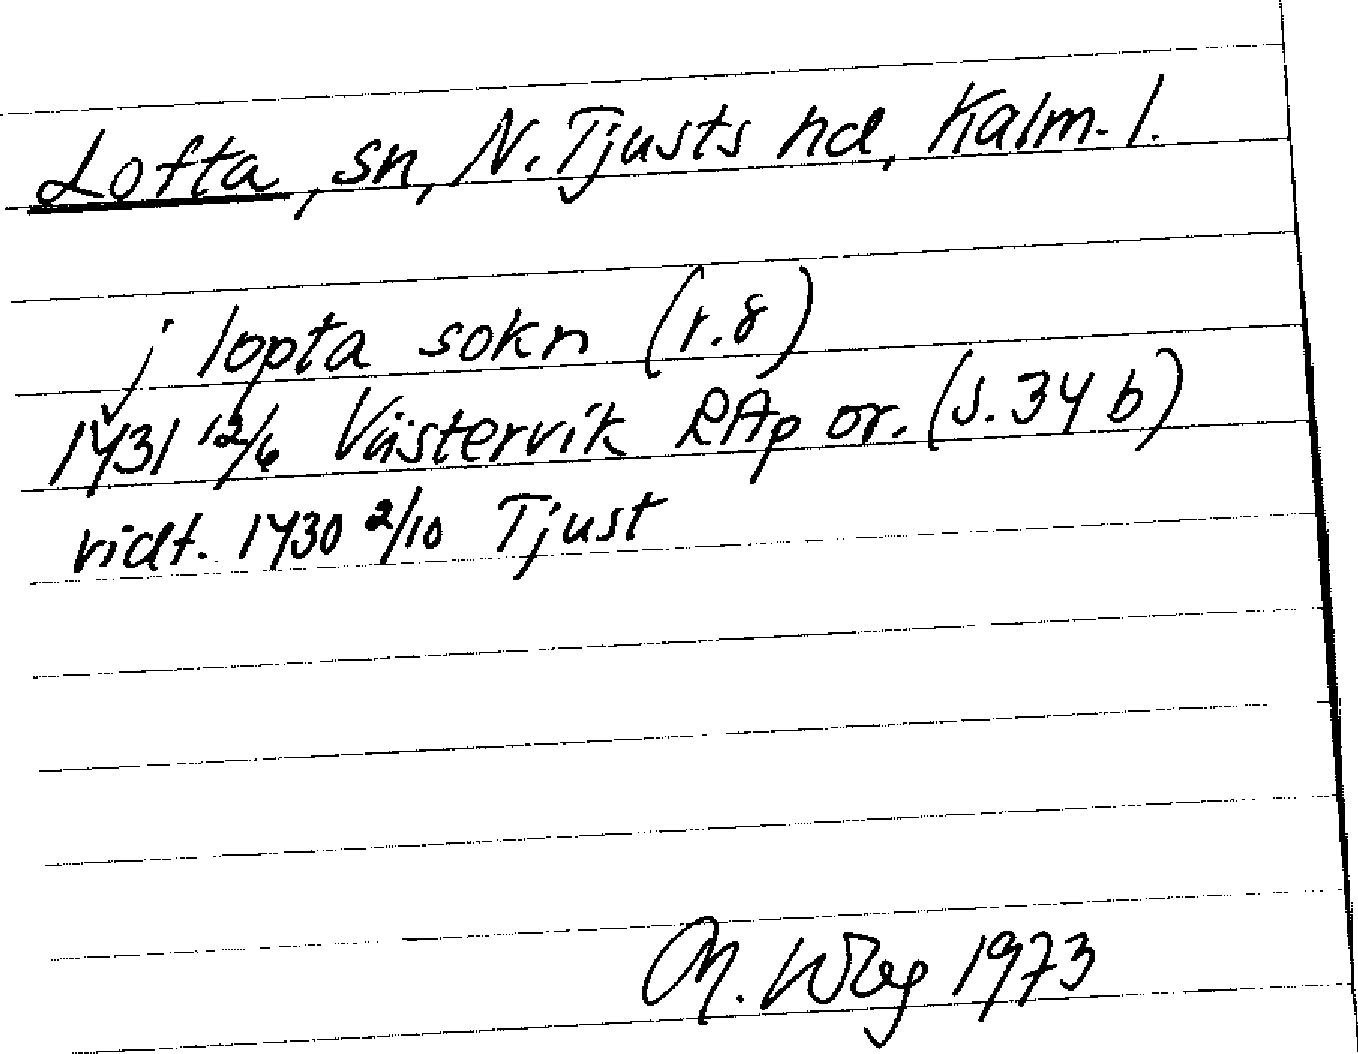 Lofta, sn, N. Tjusts hd, Kalm. l.
j lopta sokn (r. 8)
1431 12/6 Västervik RAp or. (s. 34 b)
vidt. 1430 2/10 Tjust
M. 1973